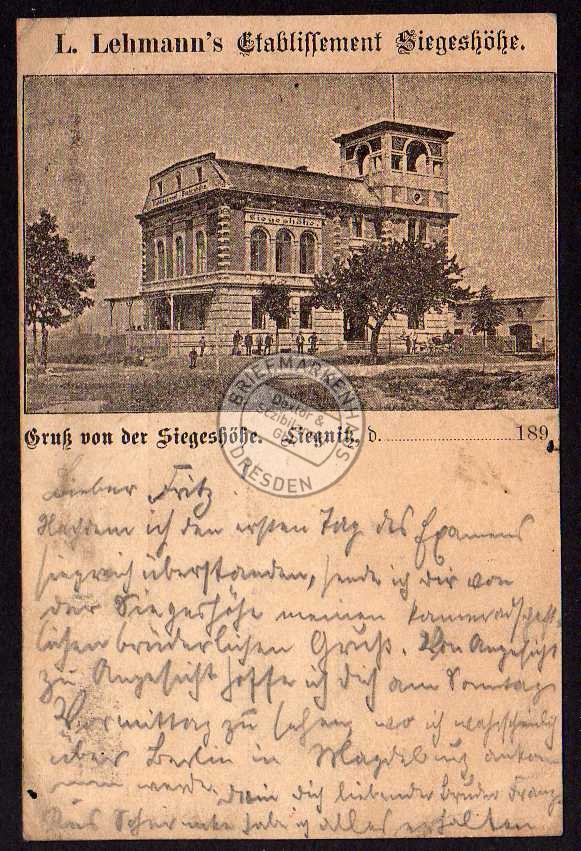 L. Lehmann's Etablissement Siegeshöhe.
Siegeshöhe.
Gruß von der Siegeshöhe. Liegnitz, d. 189
BRIEFMARKENHAUS
DRESDEN
Lieber Fritz
Nachdem ich den ersten Tag des Examens
siegreich überstanden, sende ich dir von
der Siegeshöhe meinen kameradschaft-
lichen brüderlichen Gruß. Von Angesicht
zu Angesicht hoffe ich dich am Sonntag
Vormittag zu sehen, wo ich wahrscheinlich
über Berlin in Magdeburg ankom
men werde. Dein dich liebender Bruder Franz
habe ich alles erhalten